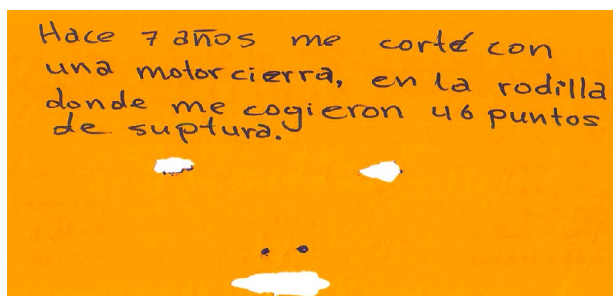 Hace 7 años me corté con
una motorcierra, en la rodilla
donde me cogieron 46 puntos
de suptura.